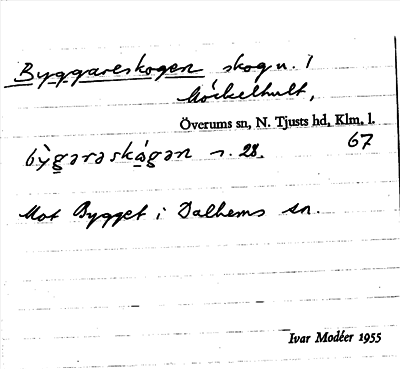 Byggareskogen skog u. /
Möckelhult,
Överums sn, N. Tjusts hd, Klm. l.
67
bỳg̱arask̇ágan r. 28.
Mot Bygget i Dalhems sn.
Ivar Modéer 1955